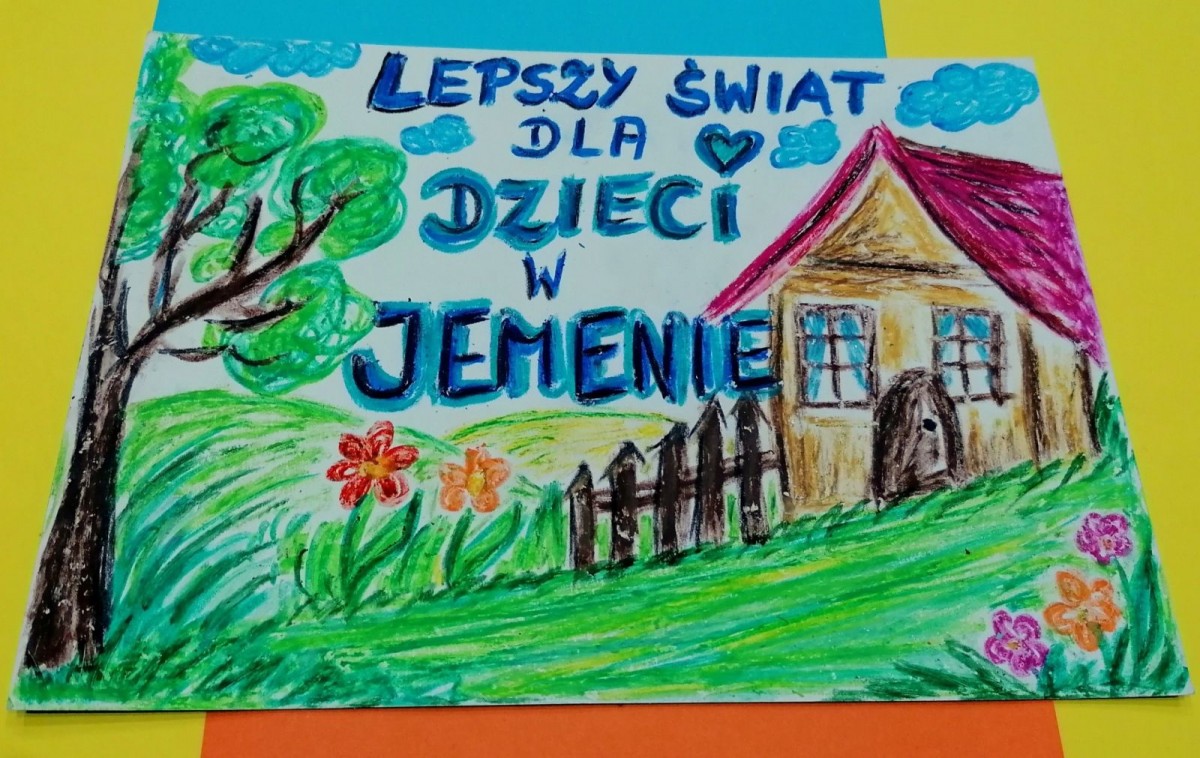 LEPSZY ŚWIAT
DLA
DZIECI
W
JEMENIE